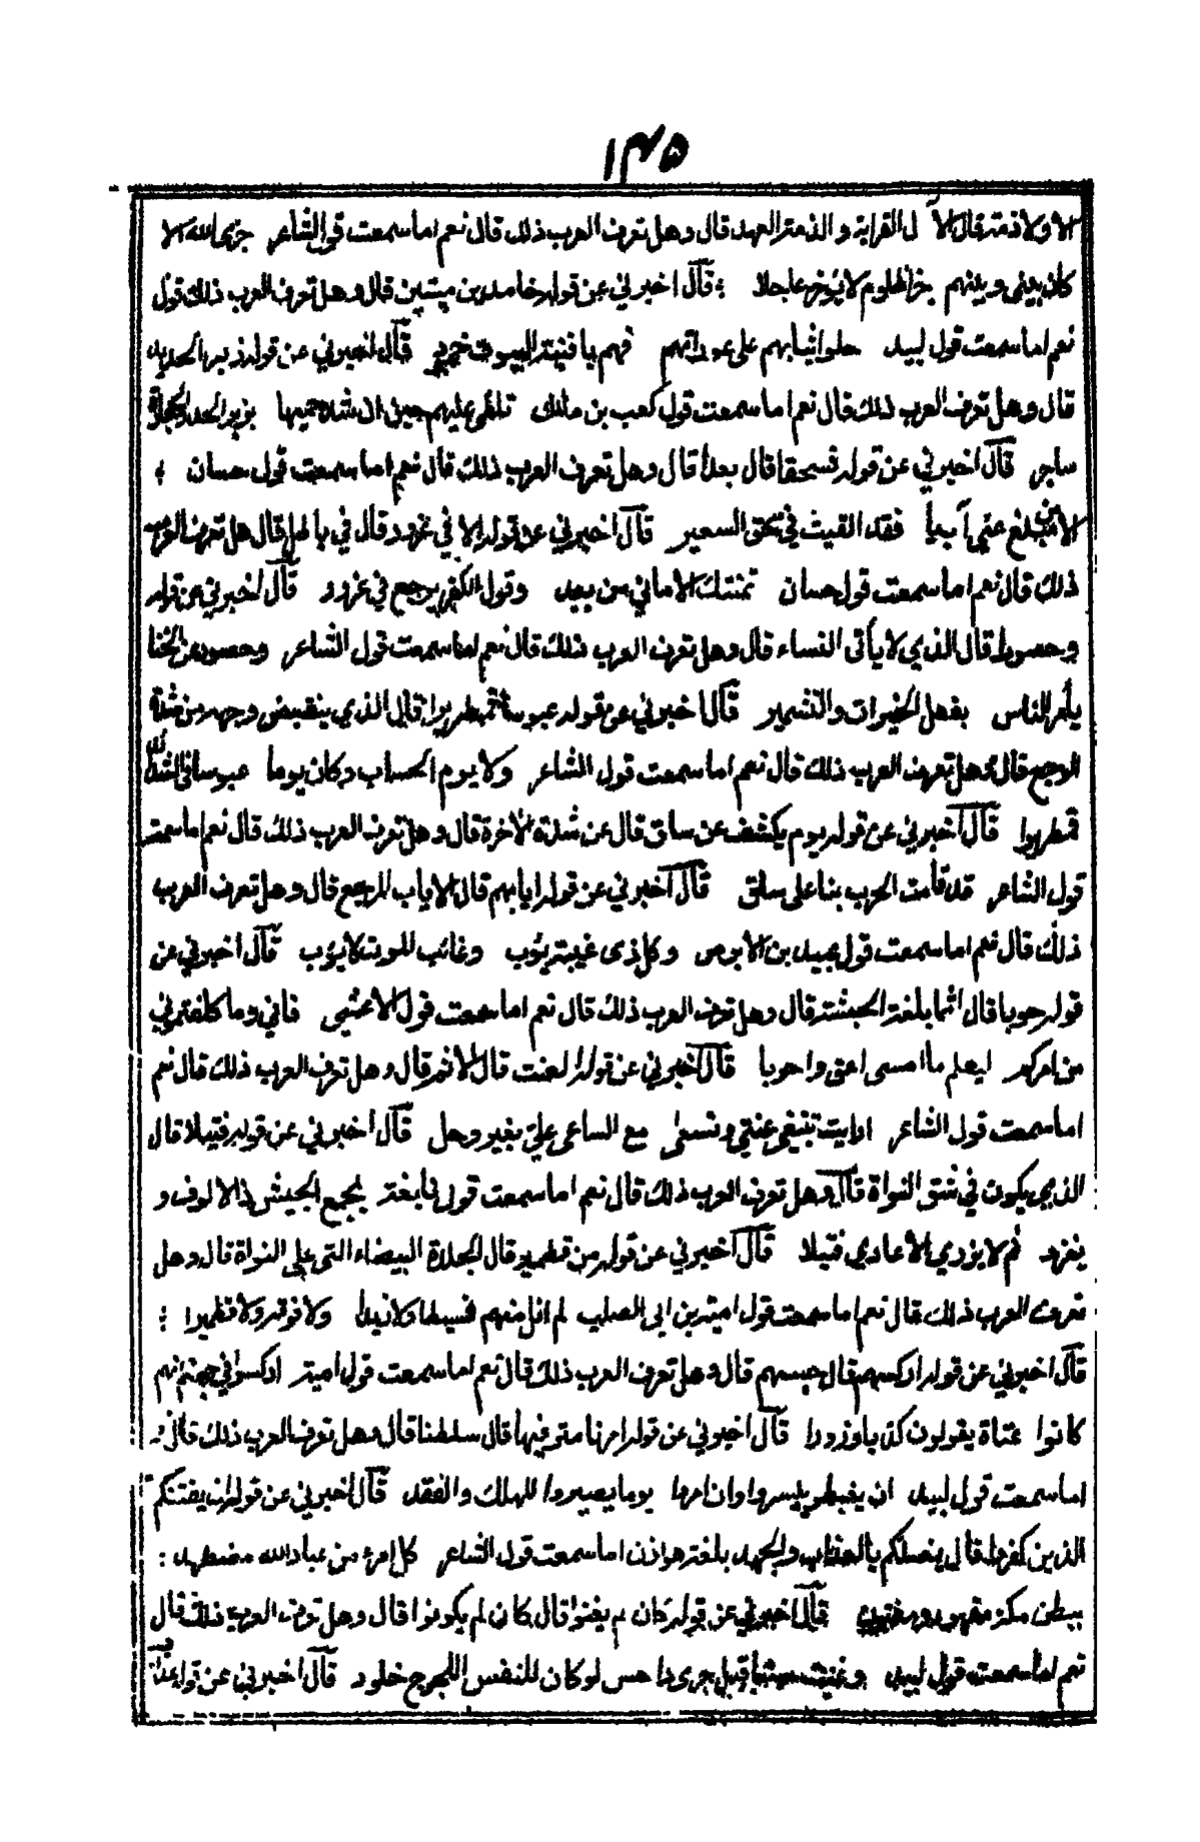 ١٣٥
الا ولا ذمة قال الال القرابة والذمة العهد قال وهل تعرف العرب ذلك قال نعم اما سمعت قول الشاعر جزى الله الا
كان بيني وبينهم جزاء ظلوم لا يؤخر عاجلا ؛ قال اخبرني عن قوله خامدين ميتين قال وهل تعرف العرب ذلك قال
نعم اما سمعت قول لبيد حلوا ثيابهم على عوراتهم فهم بافنية البيوت خمود قال اخبرني عن قوله زبر الحديد
قال وهل تعرف العرب ذلك قال نعم اما سمعت قول كعب بن مالك تلظى عليهم حين ان شد حميها بزبر الحديد والحجارة
ساجر قال اخبرني عن قوله فسحقا قال بعدا قال وهل تعرف العرب ذلك قال نعم اما سمعت قول حسان ؛
الا من مبلغ عني ابيا فقد القيت في سحق السعير قال اخبرني عن قوله الا في غرور قال في باطل قال هل تعرف العرب
ذلك قال نعم اما سمعت قول حسان تمنتك الاماني من بعيد وقول الكفر يرجع في غرور قال اخبرني عن قوله
وحصورا قال الذي لا يأتى النساء قال وهل تعرف العرب ذلك قال نعم اما سمعت قول الشاعر وحصور عن الخنا
يأمر الناس بفعل الخيرات والتشمير قال اخبرني عن قوله عبوسا قمطريرا قال الذي ينقبض وجهه من شدة
الوجع قال وهل تعرف العرب ذلك قال نعم اما سمعت قول الشاعر ولا يوم الحساب وكان يوما عبوسا في الشدائد
قمطريرا قال اخبرني عن قوله يوم يكشف عن ساق قال عن شدة الاخرة قال وهل تعرف العرب ذلك قال نعم اما سمعت
قول الشاعر قد قامت الحرب بنا على ساق قال اخبرني عن قوله ايابهم قال الاياب المرجع قال وهل تعرف العرب
ذلك قال نعم اما سمعت قول عبيد بن الابرص وكل ذى غيبة يؤب وغائب الموت لا يؤب قال اخبرني عن
قوله حوبا قال اثما بلغة الحبشة قال وهل تعرف العرب ذلك قال نعم اما سمعت قول الاعشى فاني وما كلفتموني
من امركم ليعلم ما امسى اعق واحوبا قال اخبرني عن قوله العنت قال الاثم قال وهل تعرف العرب ذلك قال نعم
اما سمعت قول الشاعر رايتك تبتغى عنتي وتسعى مع الساعى علي بغير دحل قال اخبرني عن قوله فتيلا قال
الذي يكون في شق النواة قال وهل تعرف العرب ذلك قال نعم اما سمعت قول نابغة يجمع الجيش ذا الالوف و
يغزو ثم لا يرزي الاعادي فتيلا قال اخبرني عن قوله من قطمير قال الجلدة البيضاء التى على النواة قال وهل
تعرف العرب ذلك قال نعم اما سمعت قول امية بن ابى الصلت لم انل منهم فسيطا ولا زبدا ولا فوفة ولا قطميرا ؛
قال اخبرني عن قوله اركسهم قال حبسهم قال وهل تعرف العرب ذلك قال نعم اما سمعت قول امية اركسوا في جهنم انهم
كانوا عتاة يقولون كذبا وزورا قال اخبرني عن قوله امرنا مترفيها قال سلطنا قال وهل تعرف العرب ذلك قال نعم
اما سمعت قول لبيد ان يغبطوا ييسروا وان امروا يوما يصيروا للهلك والفقد قال اخبرني عن قوله ان يفتنكم
الذين كفروا قال يضلكم بالعذاب والجهد بلغة هوازن اما سمعت قول الشاعر كل امرء من عباد الله مضطهد :
ببطن مكة مقهور ومفتون قال اخبرني عن قوله كان لم يغنوا قال كان لم يكونوا قال وهل تعرف العرب ذلك قال
نعم اما سمعت قول لبيد وغنيت سبتا قبل مجرى داحس لو كان للنفس اللجوج خلود قال اخبرني عن قوله عذاب